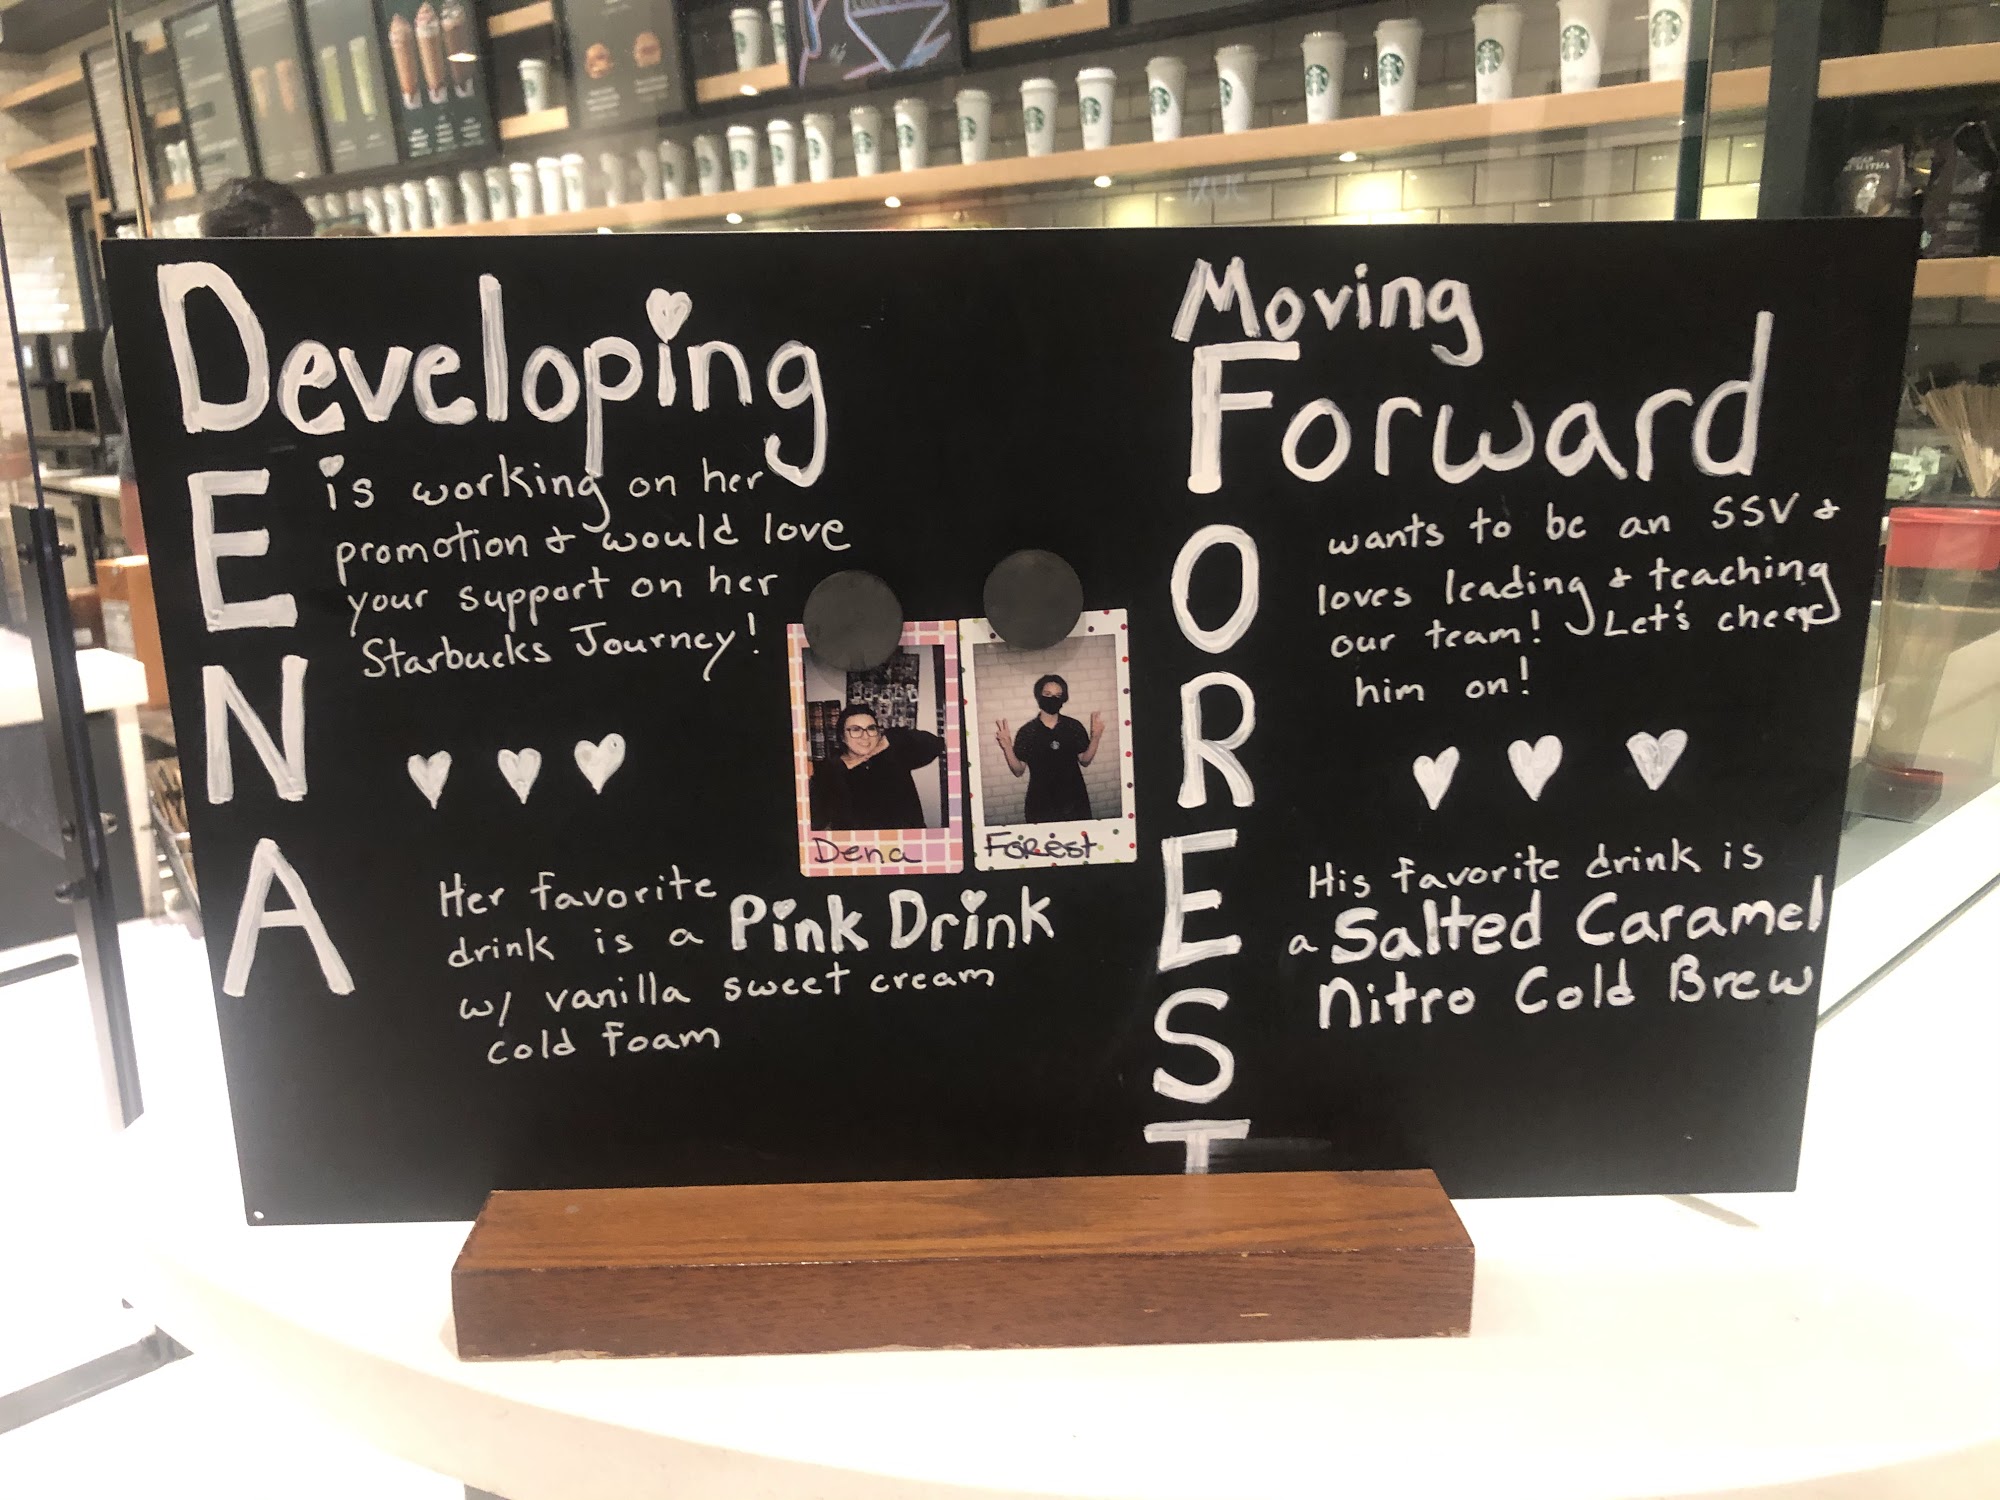 DENA
Developing
is working on her
promotion & would love
your support on her
Starbucks Journey!
Her favorite
drink is a Pink Drink
w/ vanilla sweet cream
cold foam
Dena
Forest
Moving
FOREST
Forward
wants to be an SSV &
loves leading & teaching
our team! Let's cheer
him on!
His favorite drink is
a Salted Caramel
Nitro Cold Brew